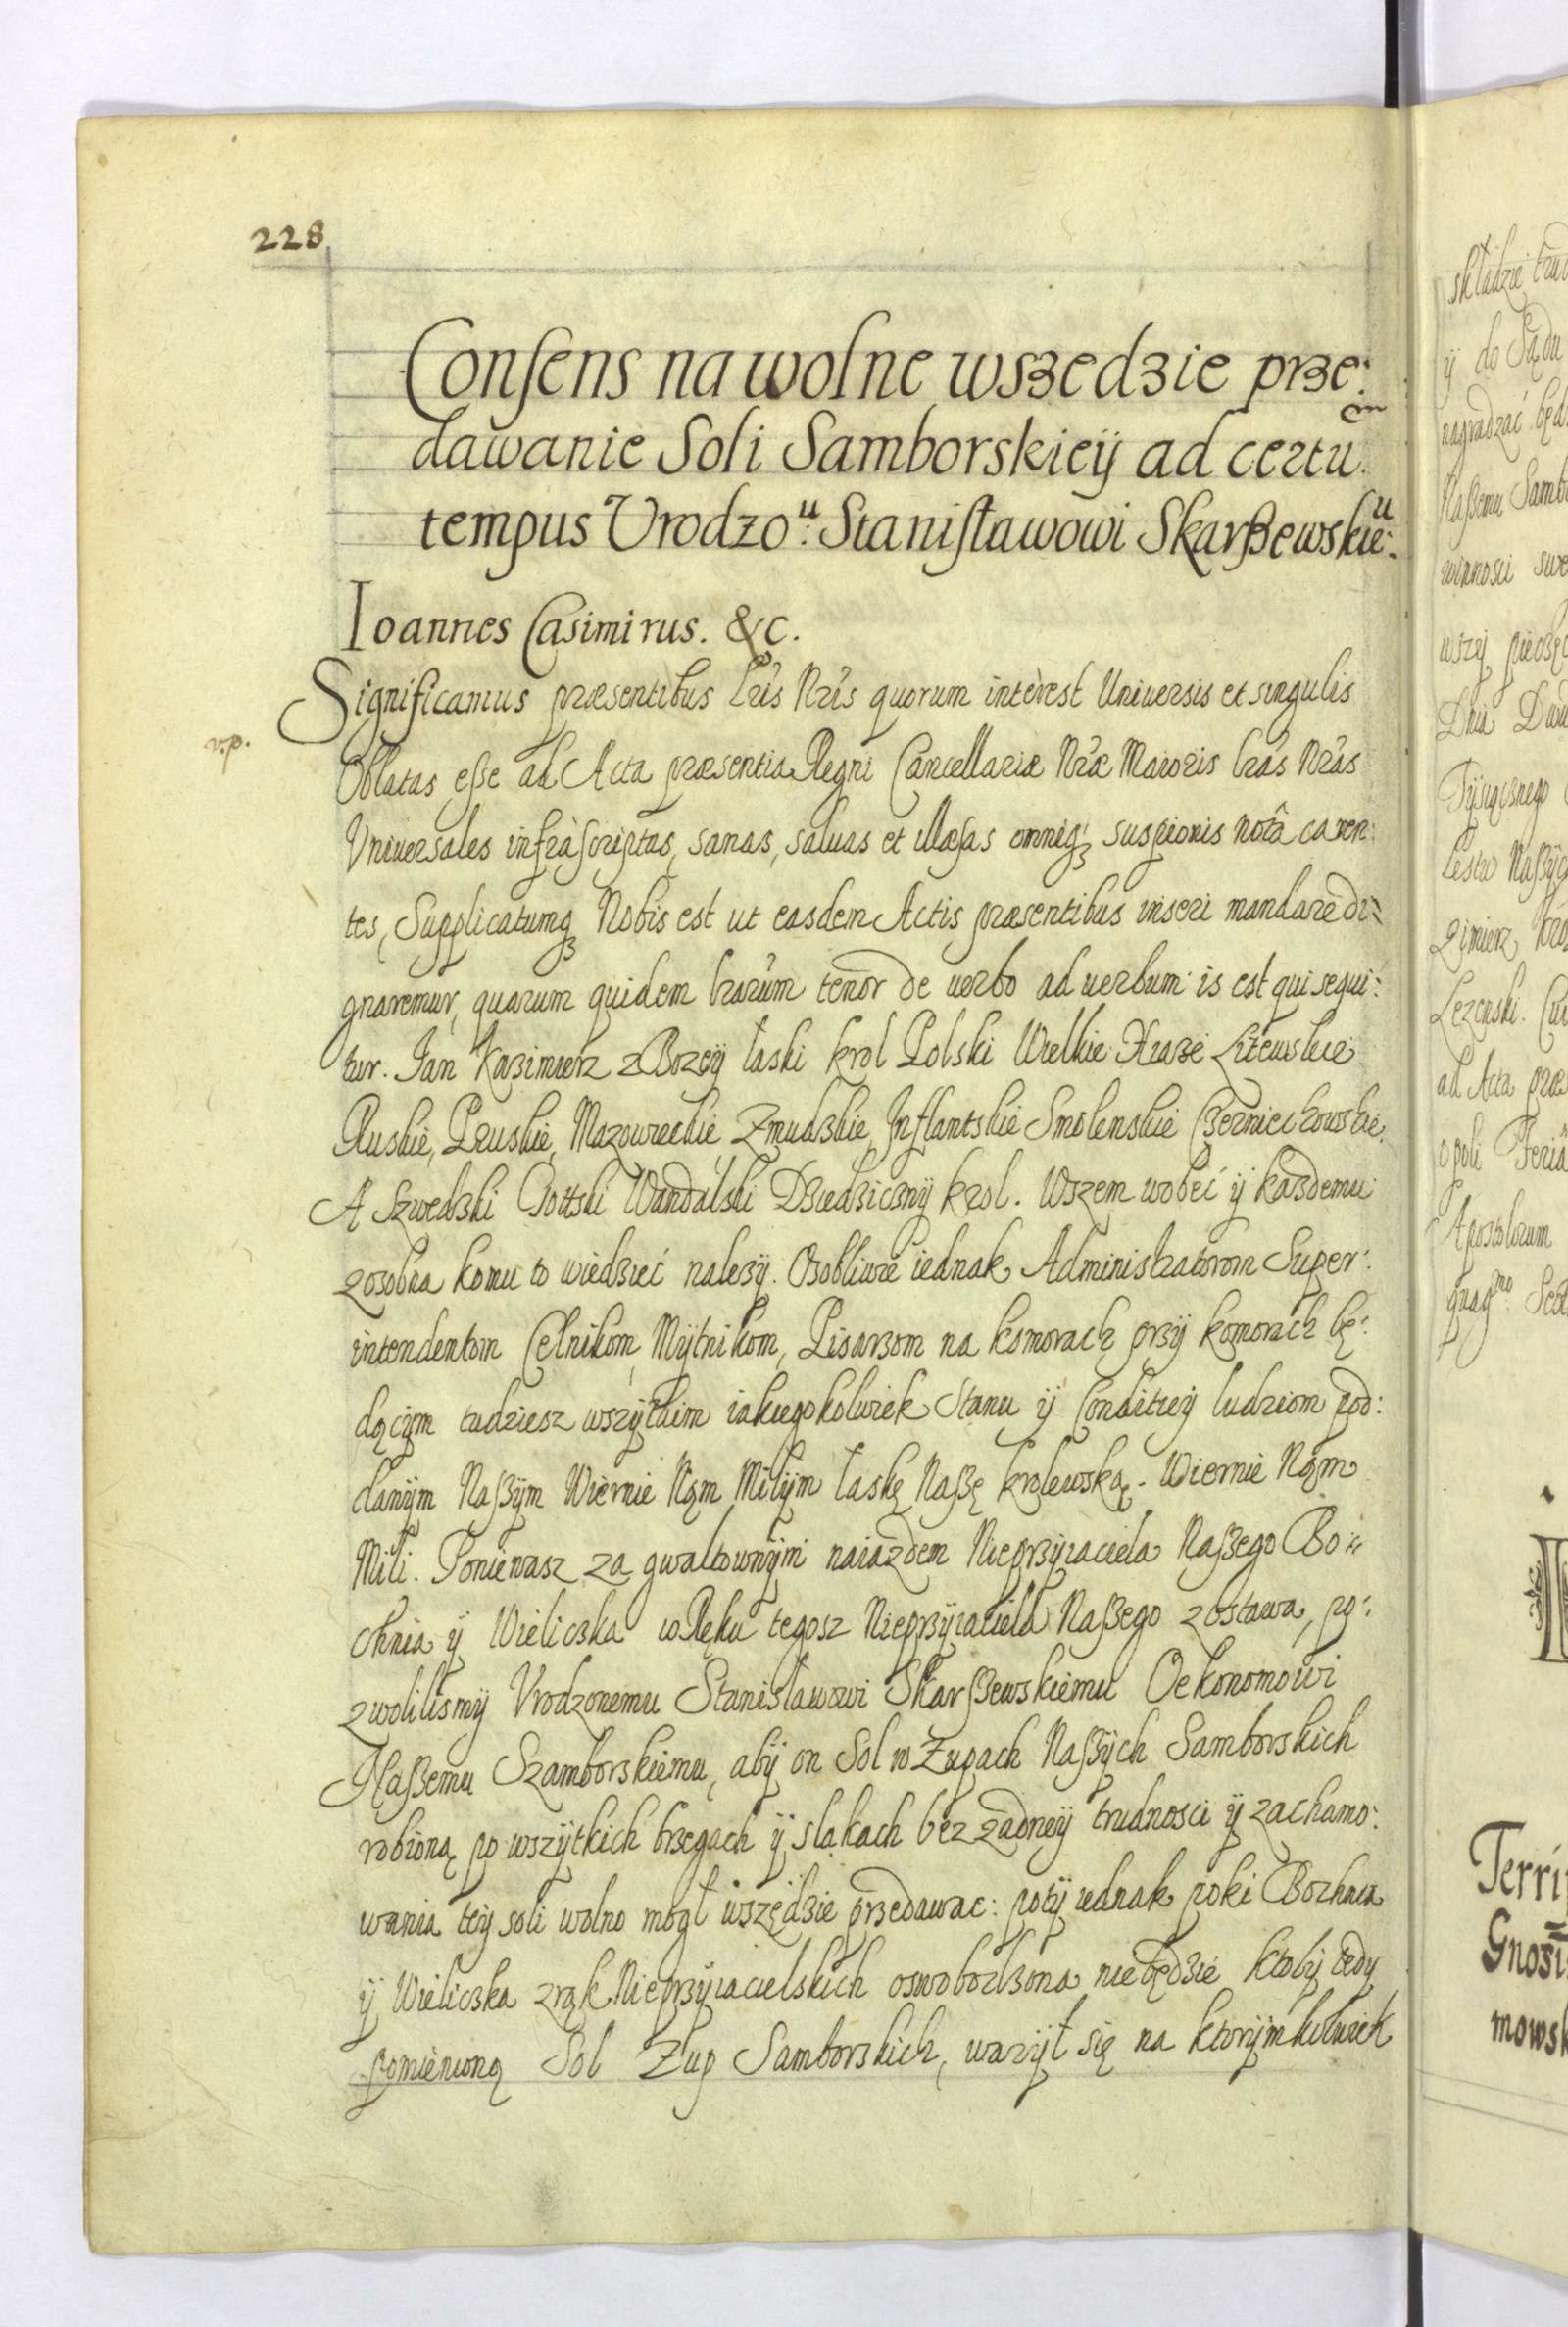 228
Consens na wolne wszedzie prze:
dawanie Soli Samborskieÿ ad certū
tempus Vrodzo.u Stanisławowi Skarszewskie:u
Ioannes Casimirus. &c.
Significamus præsentibus Lris Nris quorum interest Universis et singulis
v.p.
Oblatas esse ad Acta præsentia Regni Cancellariæ Nræ Maioris lras Nras
Vniversales infrascriptas, sanas, saluas et illæsas omniq; suspionis notâ caren:
tes, Supplicatumq; Nobis est ut easdem Actis præsentibus inseri mandare di:
gnaremur, quarum quidem lrarum tenor de uerbo ad uerbum is est qui sequi:
tur. Jan Kazimierz z Bozeÿ łaski krol Polski Wielkie Xiaze Litewskie
Ruskie, Pruskie, Mazowieckie, Zmudzkie, Inflantskie Smolenskie Czerniechowskie,
A Szwedzki Gottski Wandalski Dziedziczny krol. Wszem wobec ÿ kazdemu
zosobna komu to wiedziec nalezÿ. Osobliwie iednak Administratorom Super:
intendentom Celnikom, Mÿtnikom, Pisarzom na komorach przÿ komorach bę:
dącÿm tudziesz wszÿtkim iakiegokolwiek Stanu ÿ Conditieÿ ludziom pod:
danÿm Naszÿm Wiernie Nąm Miłÿm łaskę Naszę krolewską. Wiernie Nąm
Mili. Poniewasz za gwałtownÿm naiazdem Nieprzÿiaciela Naszego Bo:
chnia ÿ Wieliczka w Ręku tegosz Nieprzÿiaciela Naszego zostawa, po:
zwolilismÿ Vrodzonemu Stanisławowi Skarszewskiemu Oekonomowi
Naszemu Szamborskiemu, abÿ on Sol w Zupach Naszÿch Samborskich
robioną po wszÿtkich brzegach ÿ slakach bez zadneÿ trudnosci ÿ zachamo:
wania teÿ soli wolno mogł wszędzie przedawac: potÿ iednak poki Bochnia
ÿ Wieliczka z rąk Nieprzÿiacielskich oswobodzona niebędzie ktobÿ tedy
pomienioną Sol Zup Samborskich, wazÿł się na ktorÿmkolwiek